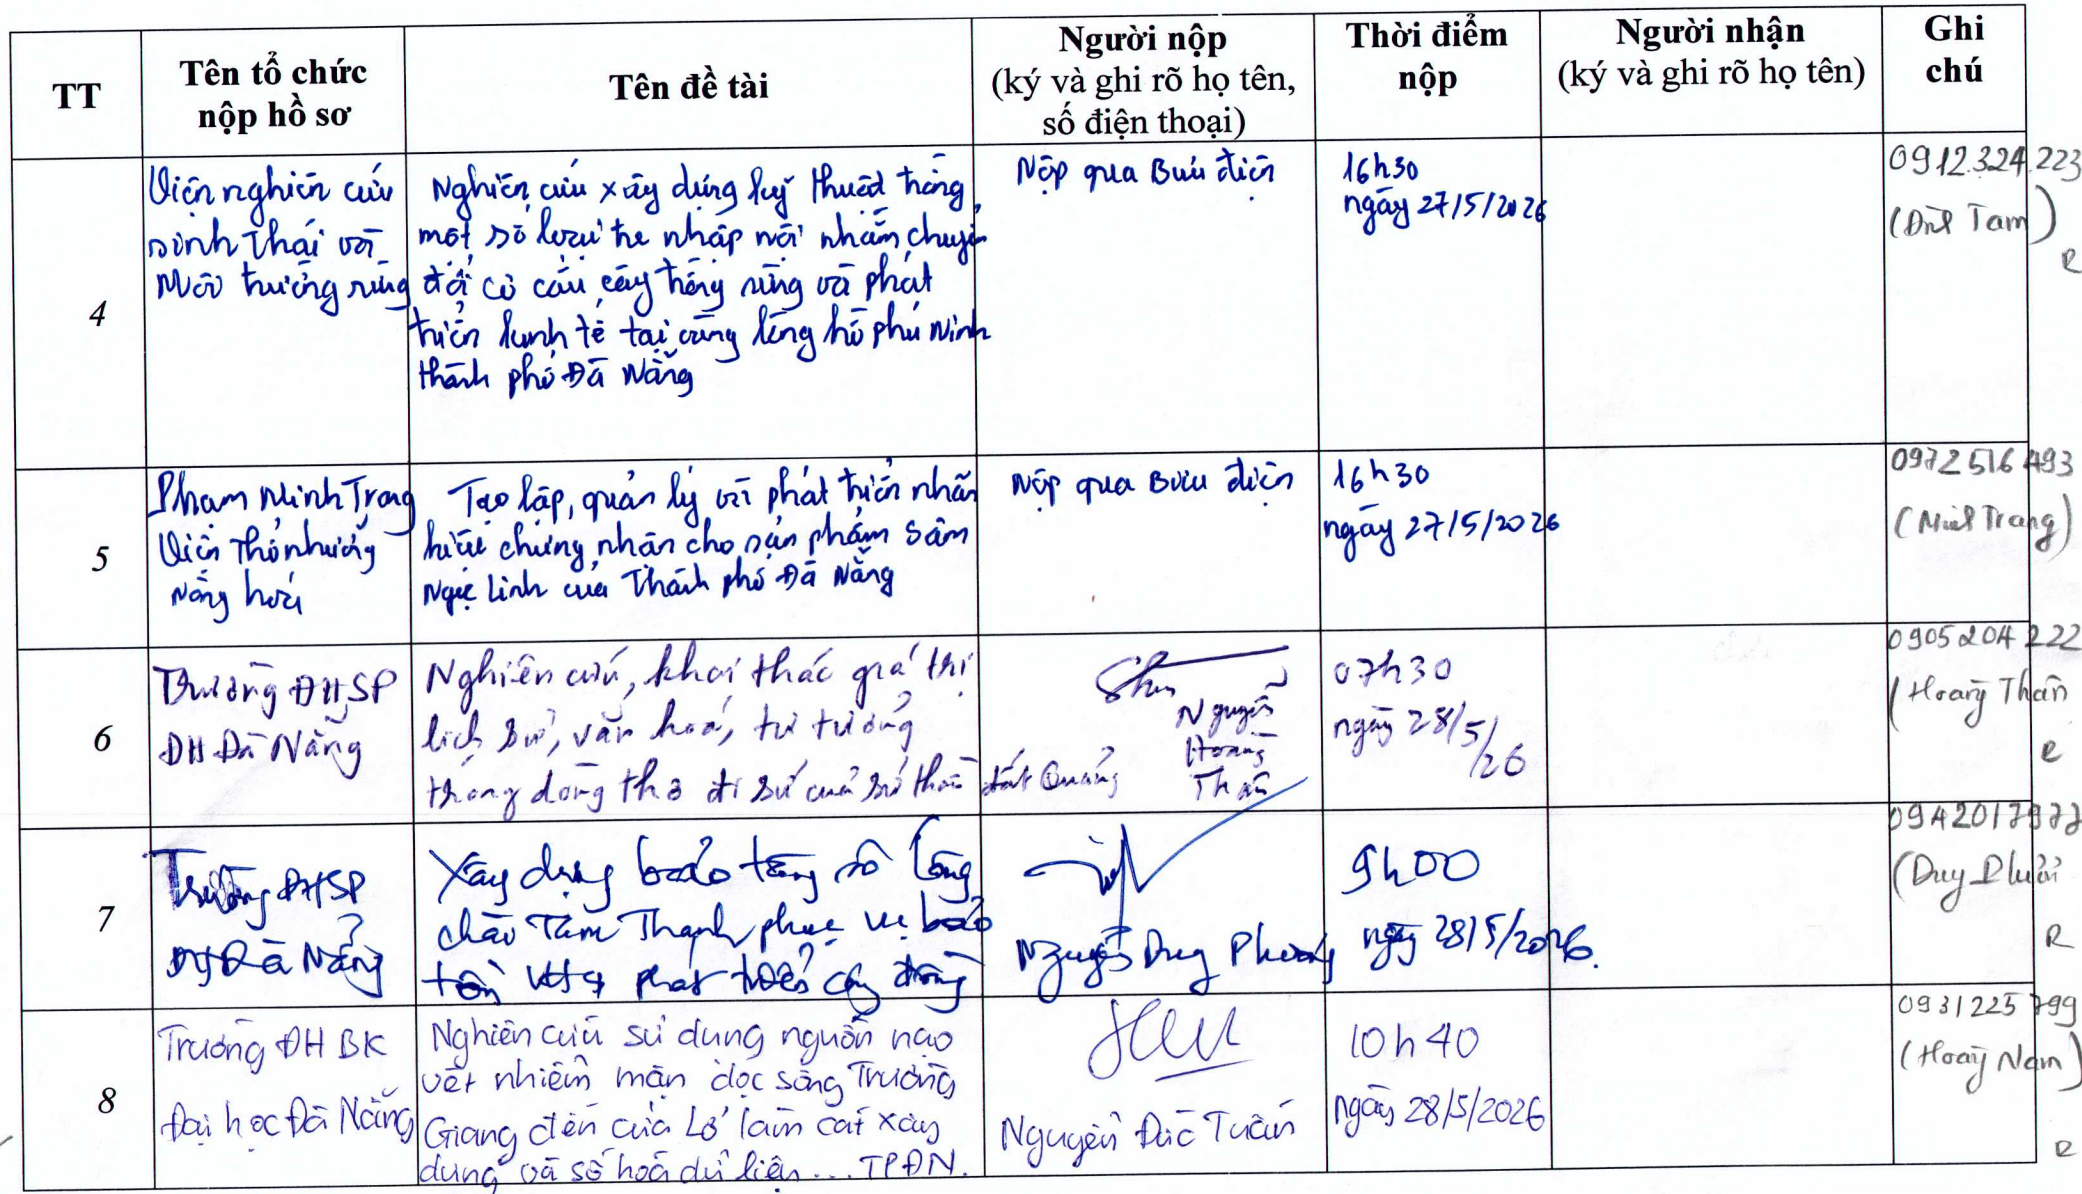 TT
Tên tổ chức
nộp hồ sơ
Tên đề tài
Người nộp
(ký và ghi rõ họ tên,
số điện thoại)
Thời điểm
nộp
Người nhận
(ký và ghi rõ họ tên)
Ghi
chú
4
Viện nghiên cứu
sinh thái và
Môi trường rừng
Nghiên cứu xây dựng kỹ thuật trồng
một số loài tre nhập nội nhằm chuyển
đổi cơ cấu cây trồng rừng và phát
triển kinh tế tại vùng lòng hồ phú Ninh
thành phố Đà Nẵng
Nộp qua Bưu điện
16h30
ngày 27/5/2026
0912.324.223
(Tam)
R
5
Phạm Minh Trang
Viện Thổ nhưỡng
Nông hoá
Tạo lập, quản lý và phát triển nhãn
hiệu chứng nhận cho sản phẩm Sâm
Ngọc Linh của Thành phố Đà Nẵng
Nộp qua Bưu điện
16h30
ngày 27/5/2026
0972516493
(Minh Trang)
6
Trường ĐHSP
ĐH Đà Nẵng
Nghiên cứu, khai thác giá trị
lịch sử, văn hoá, tư tưởng
trong dòng thơ đi sứ của sứ thần đất Quảng
Nguyễn
Hoàng
Thân
07h30
ngày 28/5/26
0905204222
(Hoàng Thân
R
7
Trường ĐHSP
ĐH Đà Nẵng
Xây dựng bảo tàng số làng
chài Tam Thanh phục vụ bảo
tồn phát triển cộng đồng
Nguyễn Duy Phương
9h00
ngày 28/5/2026.
(Duy
R
8
Trường ĐH BK
Đại học Đà Nẵng
Nghiên cứu sử dụng nguồn nạo
vét nhiễm mặn dọc sông Trường
Giang đến cửa Lở làm cát xây
dựng và số hoá dữ liệu ... TPĐN.
Nguyễn Đức Tuấn
10h40
ngày 28/5/2026
0931225799
(Hoàng Nam)
R